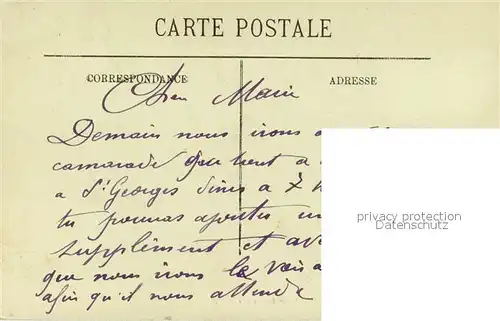 CARTE POSTALE
CORRESPONDANCE
ADRESSE
Chère Marie
Demain nous irons
camarade
a St Georges a 7
tu pourras ajouter un
supplément et
que nous irons le voir
afin qu'il nous attende
privacy protection
Datenschutz